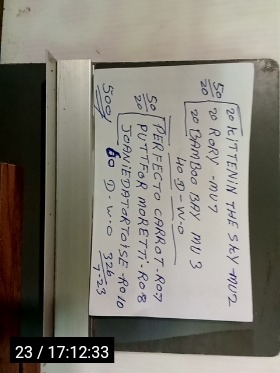 20 KITTEN IN THE SKY - MU2
50 20 RORY - MU7
20 20 BAMBOO BAY MU 3
40 D - W-O
PERFECTO CARROT - RO7
50 PUTTFOR MORETTI - RO8
20 JOANIEDATORTOISE - RO10
500/ 60 D - W-O 326
7-23
23 / 17:12:33